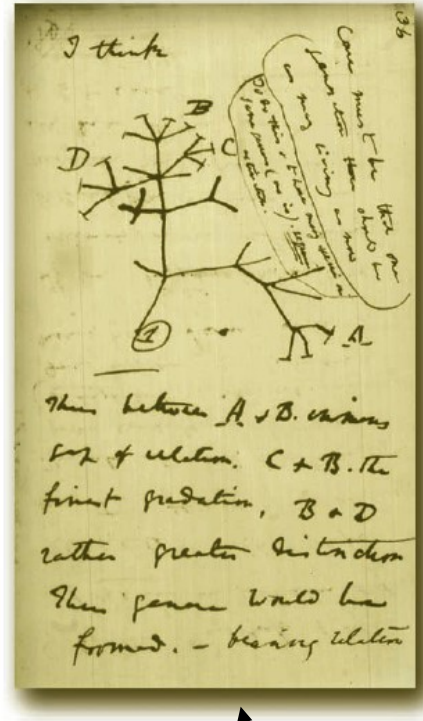 36
I think
Case must be that one
generation then should be
as many living as now
To do this & to have many species in
same genus (as is). requires
extinction.
B
D
C
A
1
Thus between A & B. immens
gap of relation. C & B. the
finest gradation, B & D
rather greater distinction
Thus genera would be
formed. – bearing relation